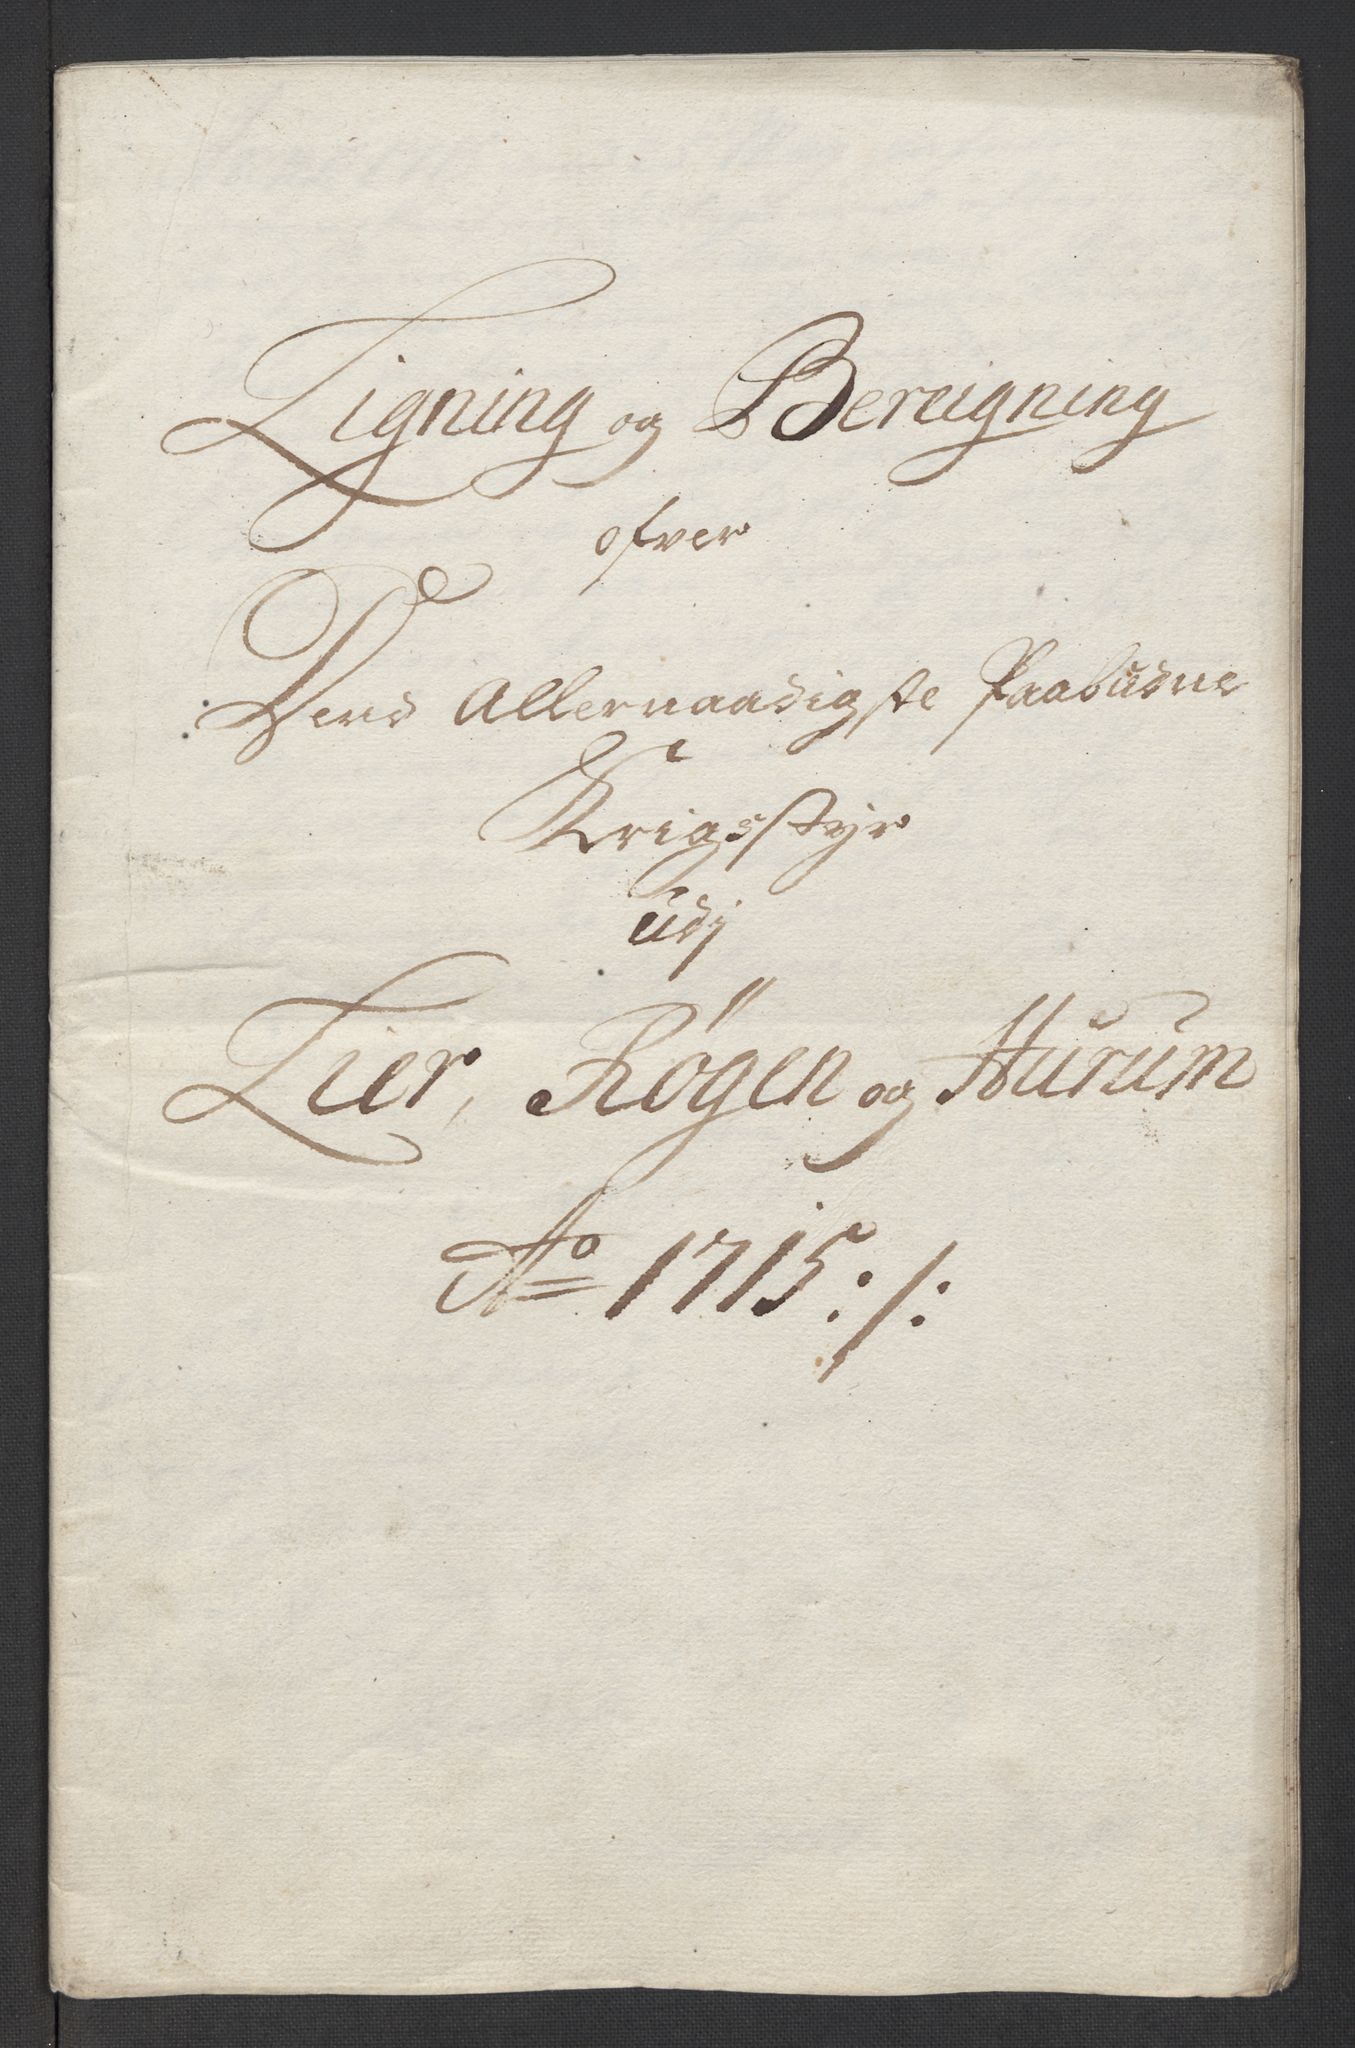 Ligning og Bereigning
ofver
Dend Allernaadigste Paabudne
Krigsstyr
udj
Lier, Røgen og Hurum
Ao 1715:/: